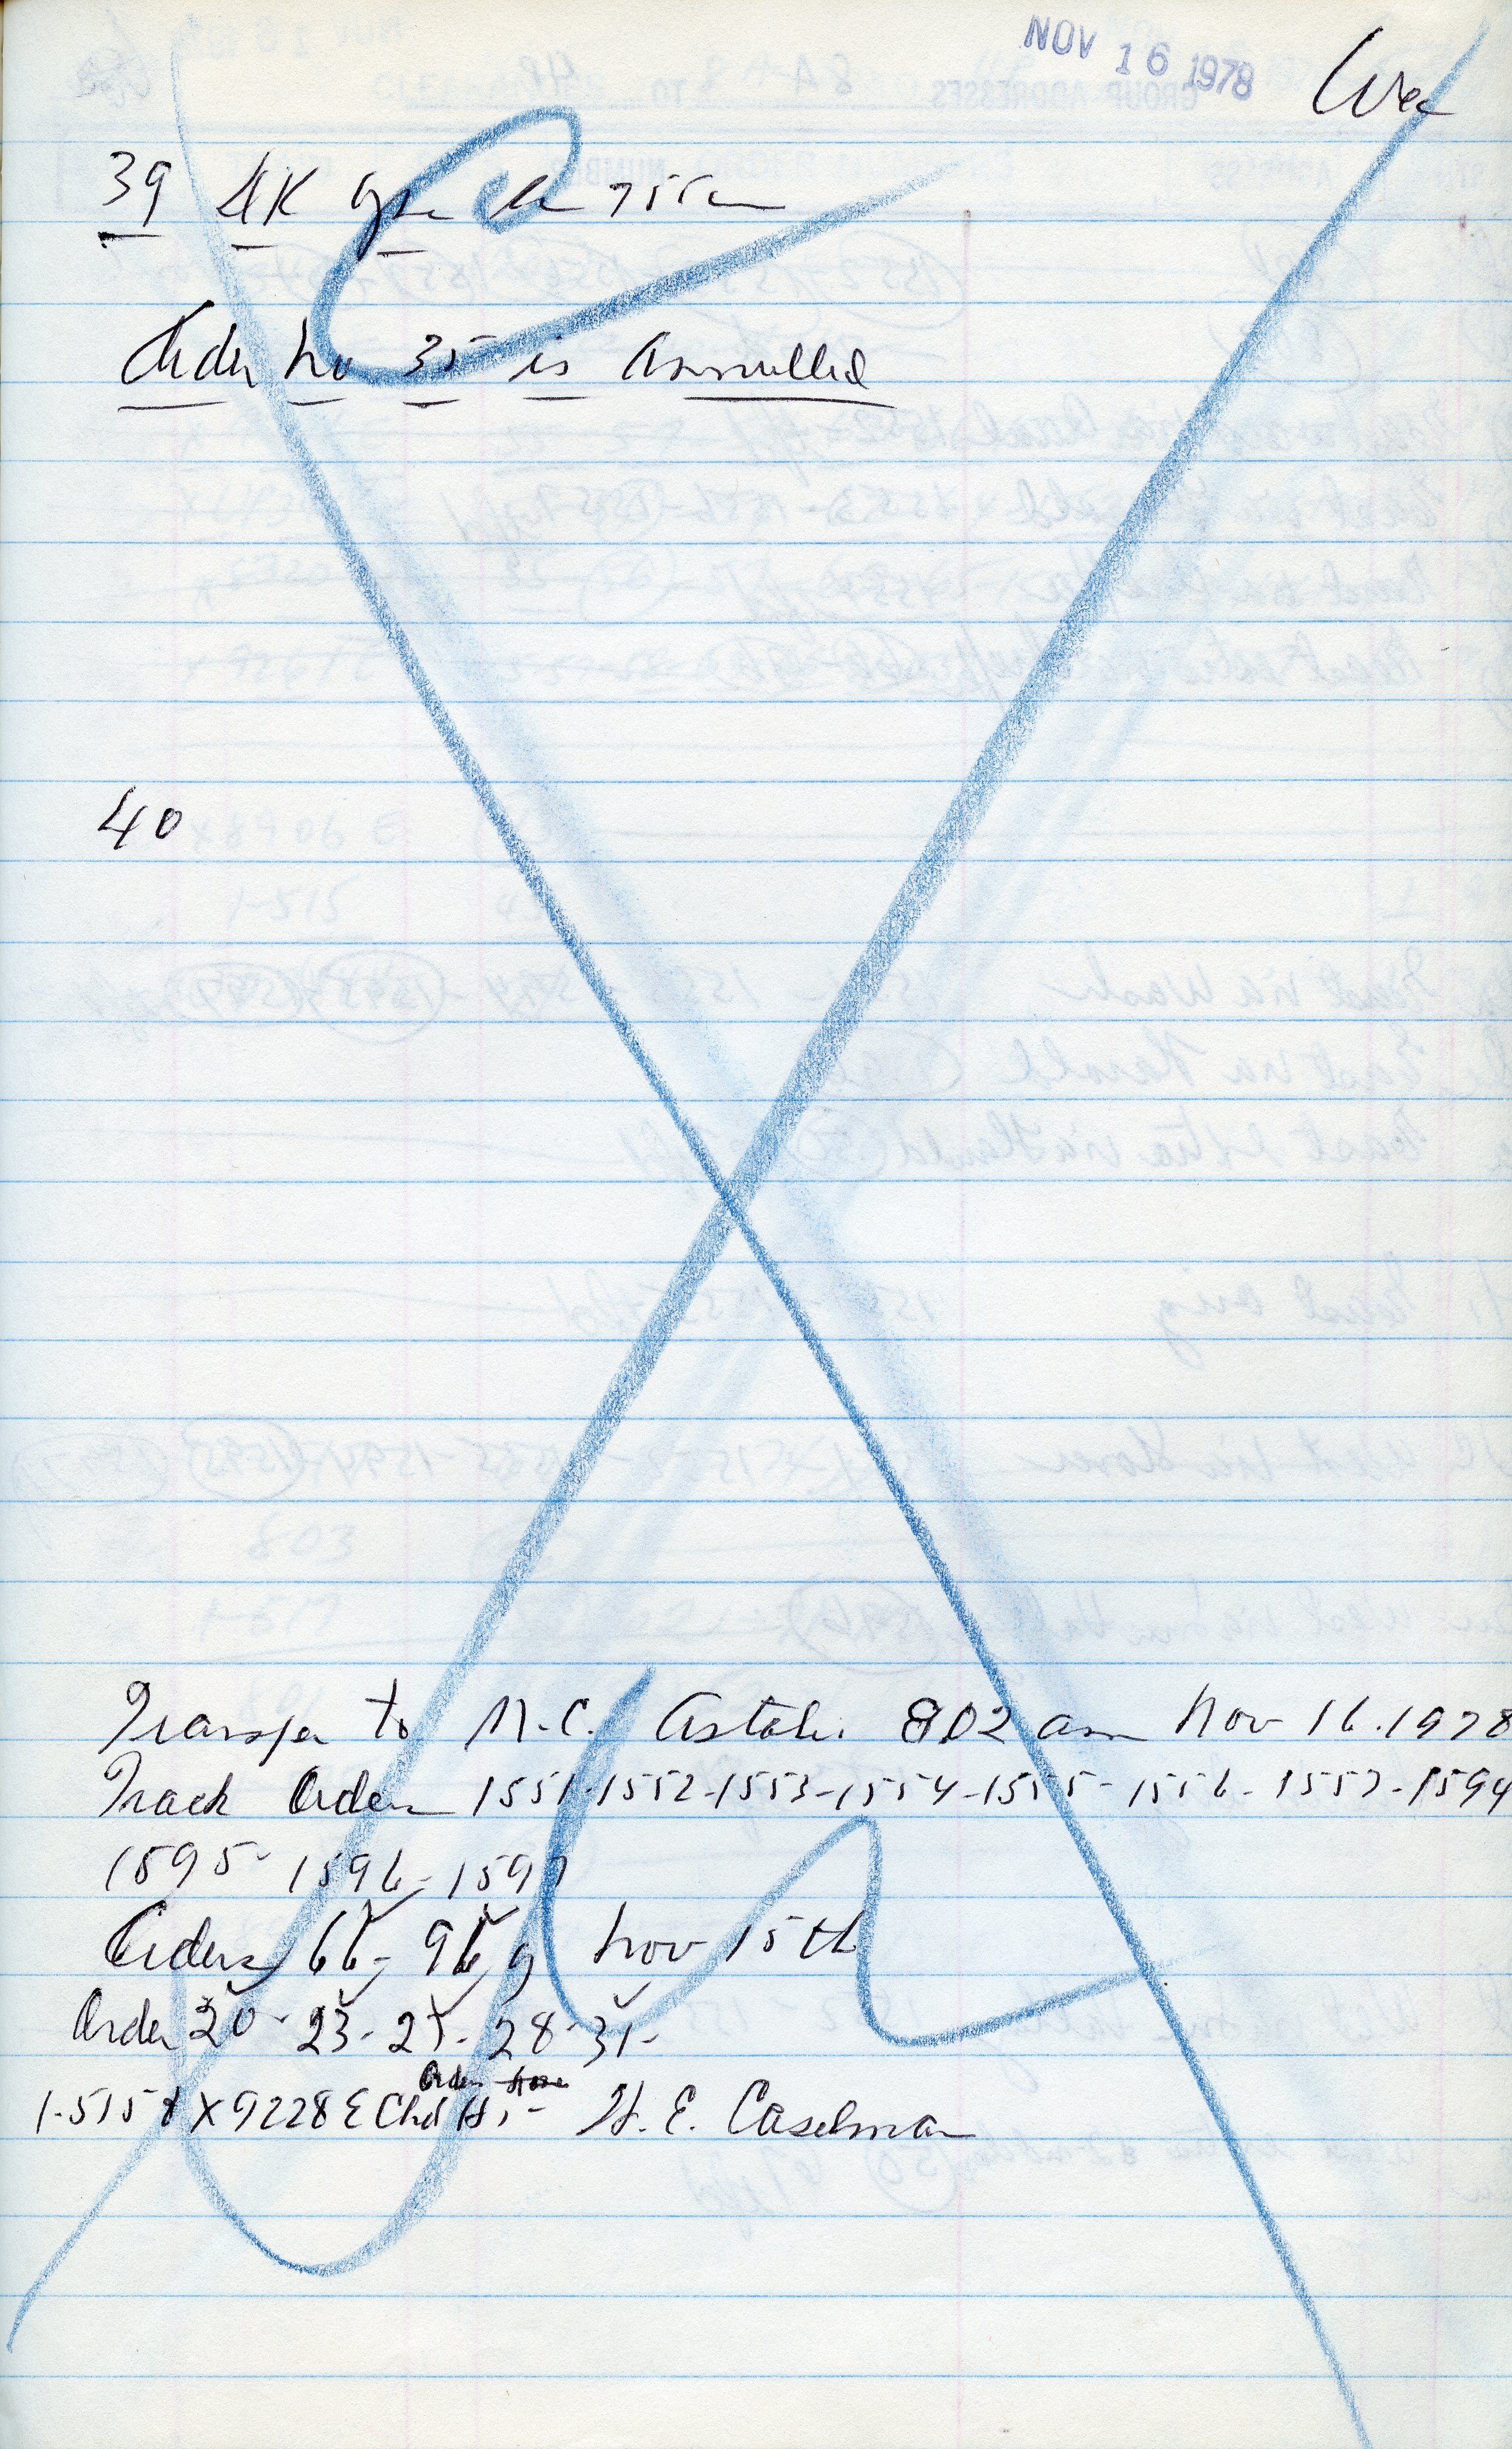 NOV 16 1978
39 AK 755am
Order No 35 is Annulled
40
Transfer to M.C. 802 am Nov 16.1978
Track Order 1551-1552-1553-1554-1555-1556-1557-1594
1595-1596-1597
Orders 66-96 Nov 15th
Order 20-23-25-28-31-
Order
1-515 X 9228 E Chd H. E. Caselman